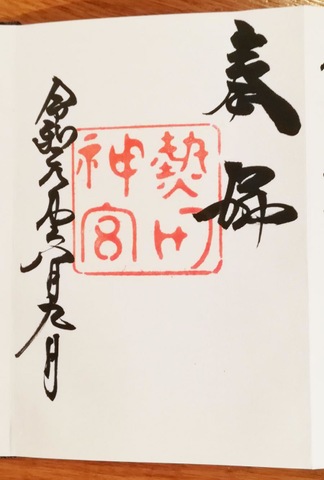 奉拝
熱田
神宮
令和元年八月九日